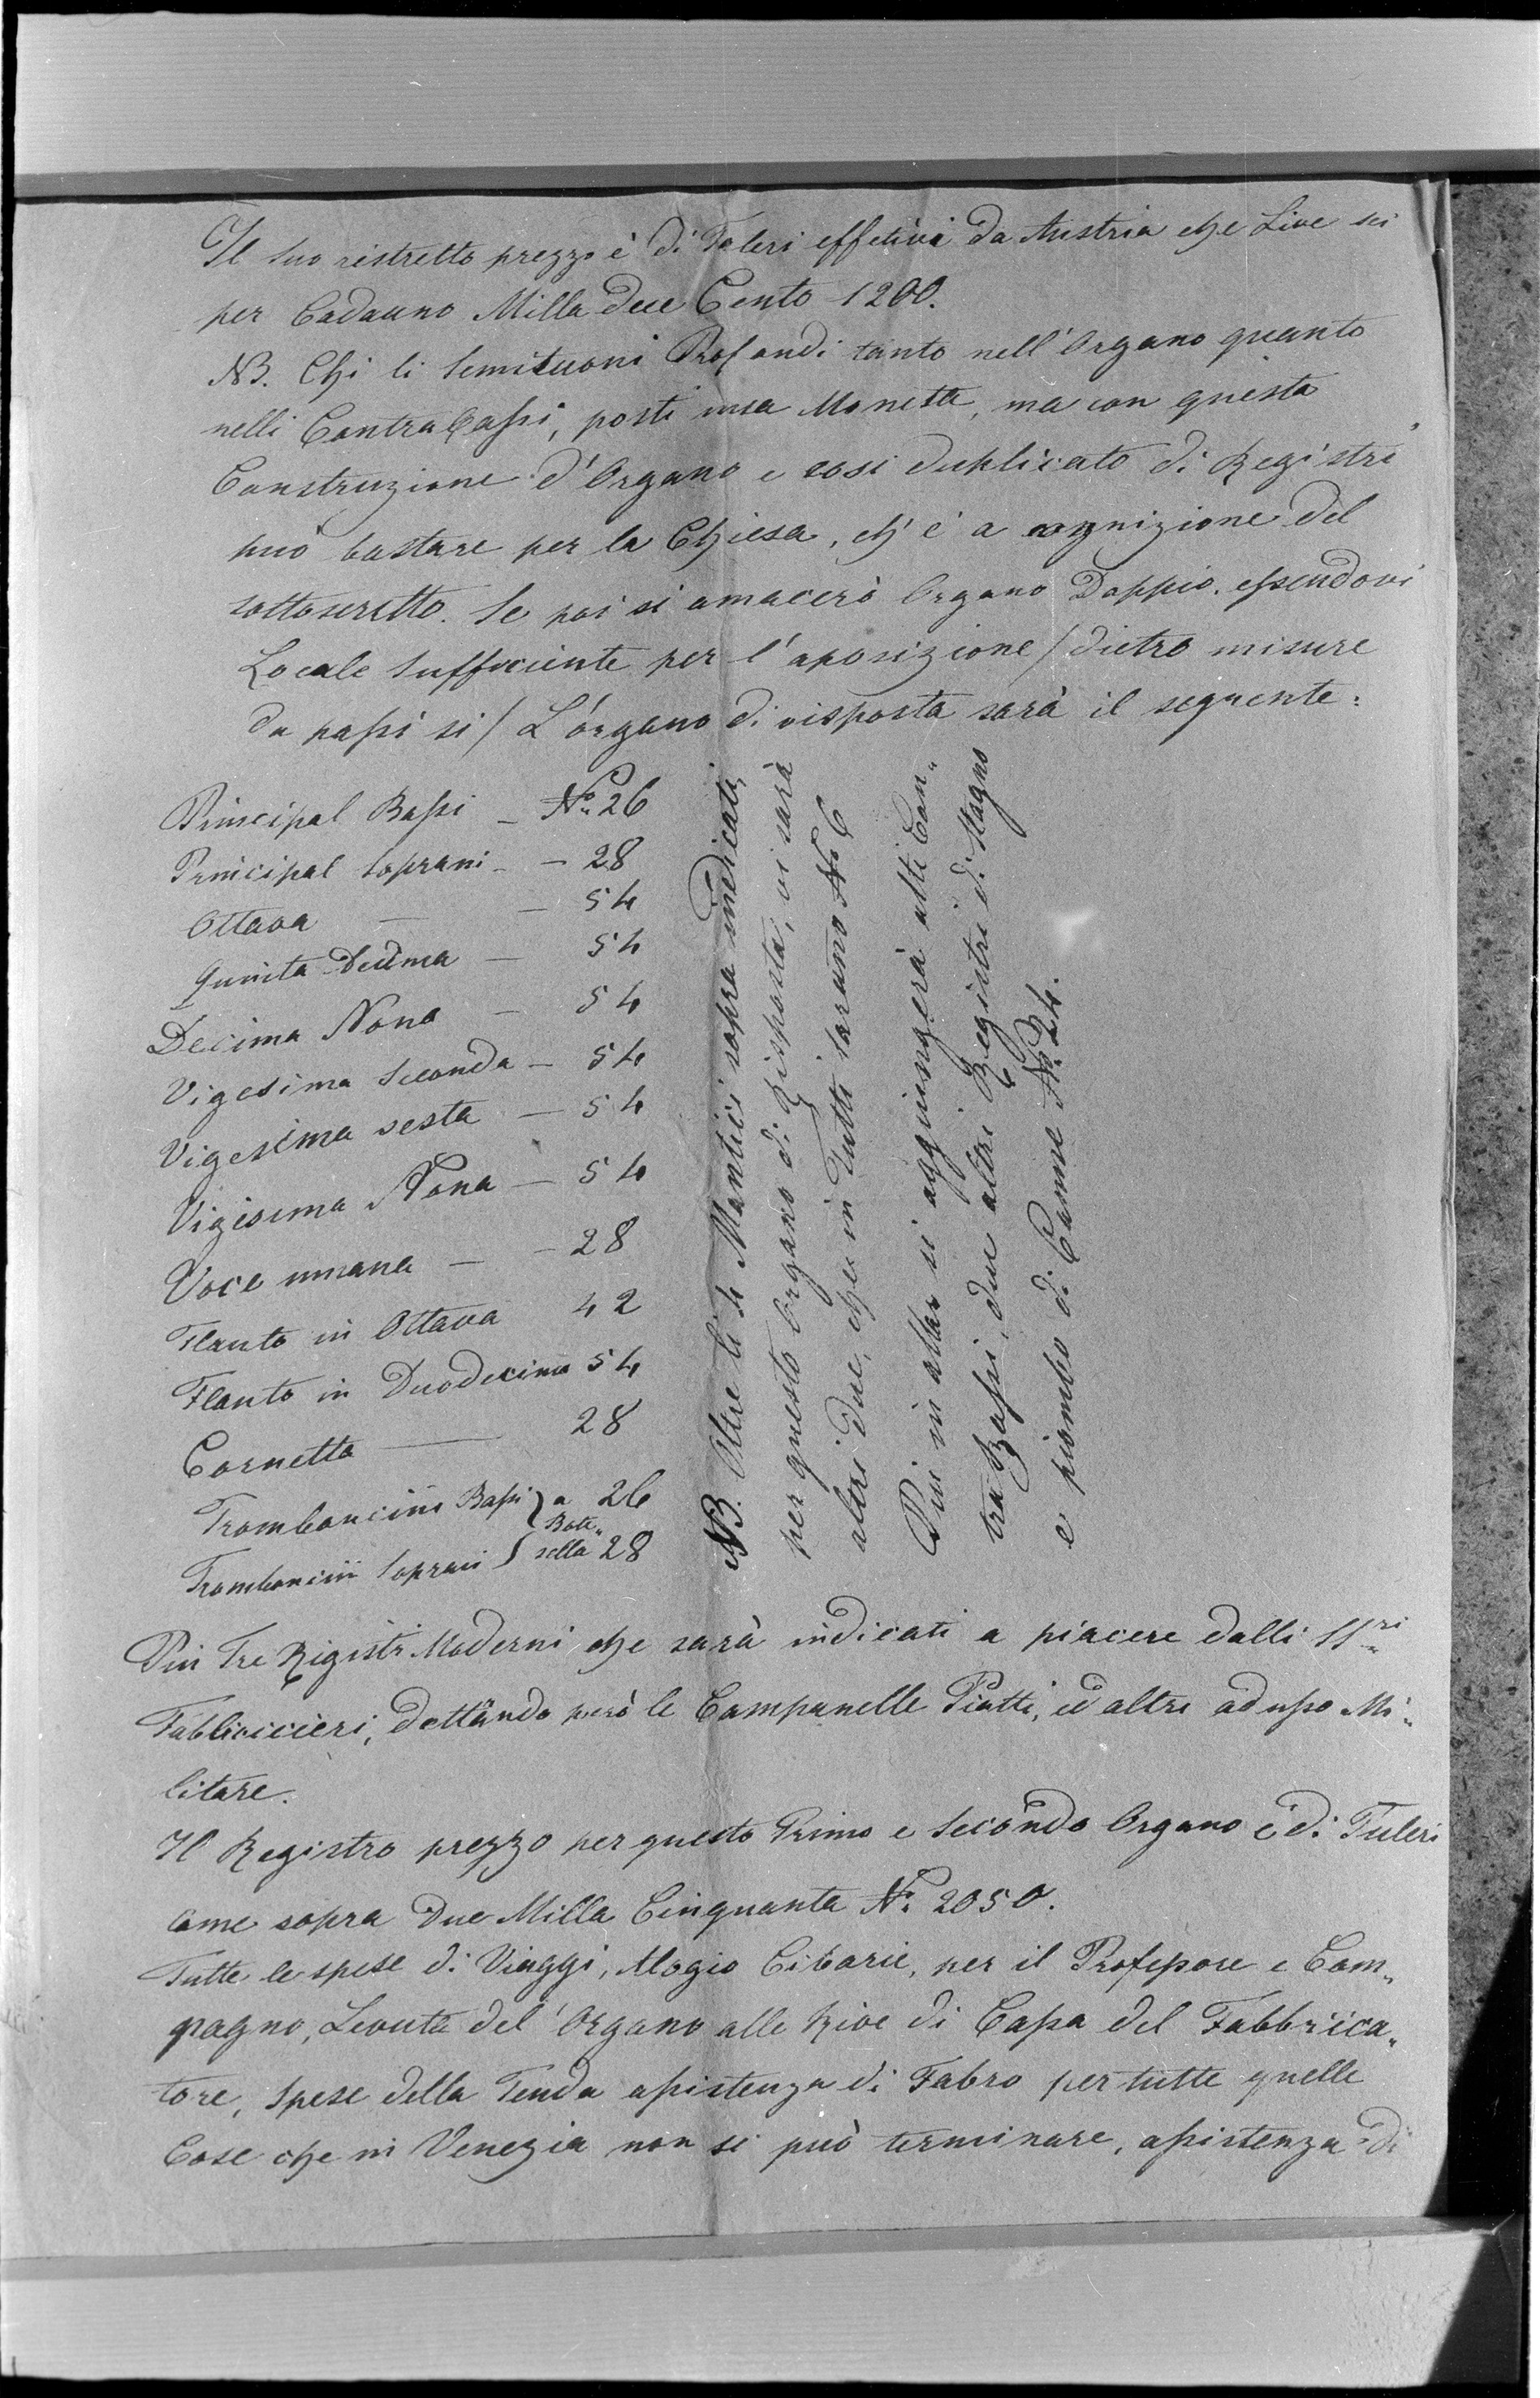 Il suo ristretto prezzo è di Taleri effetivi da Austria che Lire sei
per Cadauno Milla due Cento 1200.
NB. Chi li Semituoni Profondi tanto nell'Organo quanto
nelli Contrabassi, posti una Monetta, ma con questa
Construzione d'Organo e cosi dublicato di Registri
può bastare per la Chiesa, ch'è a cognizione del
sottoscritto. Se poi si amacerò Organo Doppio, essendovi
Locale sufficiente per l'aposizione / dietro misure
da passi si / L'organo di risposta sarà il seguente:
Principal Bassi – No. 26
Principal soprani – – 28
Ottava – – 54
Quinta Decima – 54
Decima Nona – 54
Vigesima Seconda – 54
Vigesima sesta – 54
Vigesima Nona – 54
Voce umana – – 28
Flauto in Ottava 42
Flauto in Duodecima 54
Cornetta – 28
Tromboncini Bassi } a 26
Bote„
Tromboncini soprani } sella 28
NB. Oltre li 4 Mantici sopra indicati,
per questo Organo di Risposta, vi sarà
altri due, che in Tutti saranno No. 6
Più in oltre si aggiungerà altri Con„
tra Bassi, due altri Registri di Stagno
e piombo di Canne No. 24.
Più Tre Rigistri Moderni che sarà indicati a piacere dalli SSri
Fabbricieri, dettando però le Campanelle Piatti, ed altri ad uso Mi„
litare.
Il Registro prezzo per questo Primo e Secondo Organo è di Tuleri
come sopra Due Milla Cinquanta No. 2050.
Tutte le spese di Viaggi, Alogio Cibarie, per il Professore e Com„
pagno, Levuta del'Organo alle Rive di Cassa del Fabbrica„
tore, Spese della Tenda assistenza di Fabro per tutte quelle
Cose che in Venezia non si può terminare, assistenza di